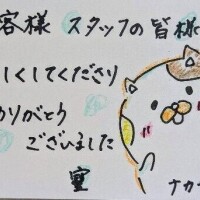 客様 スタッフの皆様
しくしてくださり
りがとう
ございました
ナカ